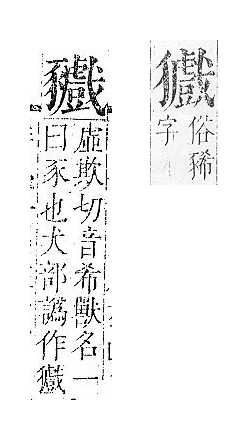 俗豨
字
虛欺切音希獸名一
曰豕也犬部譌作